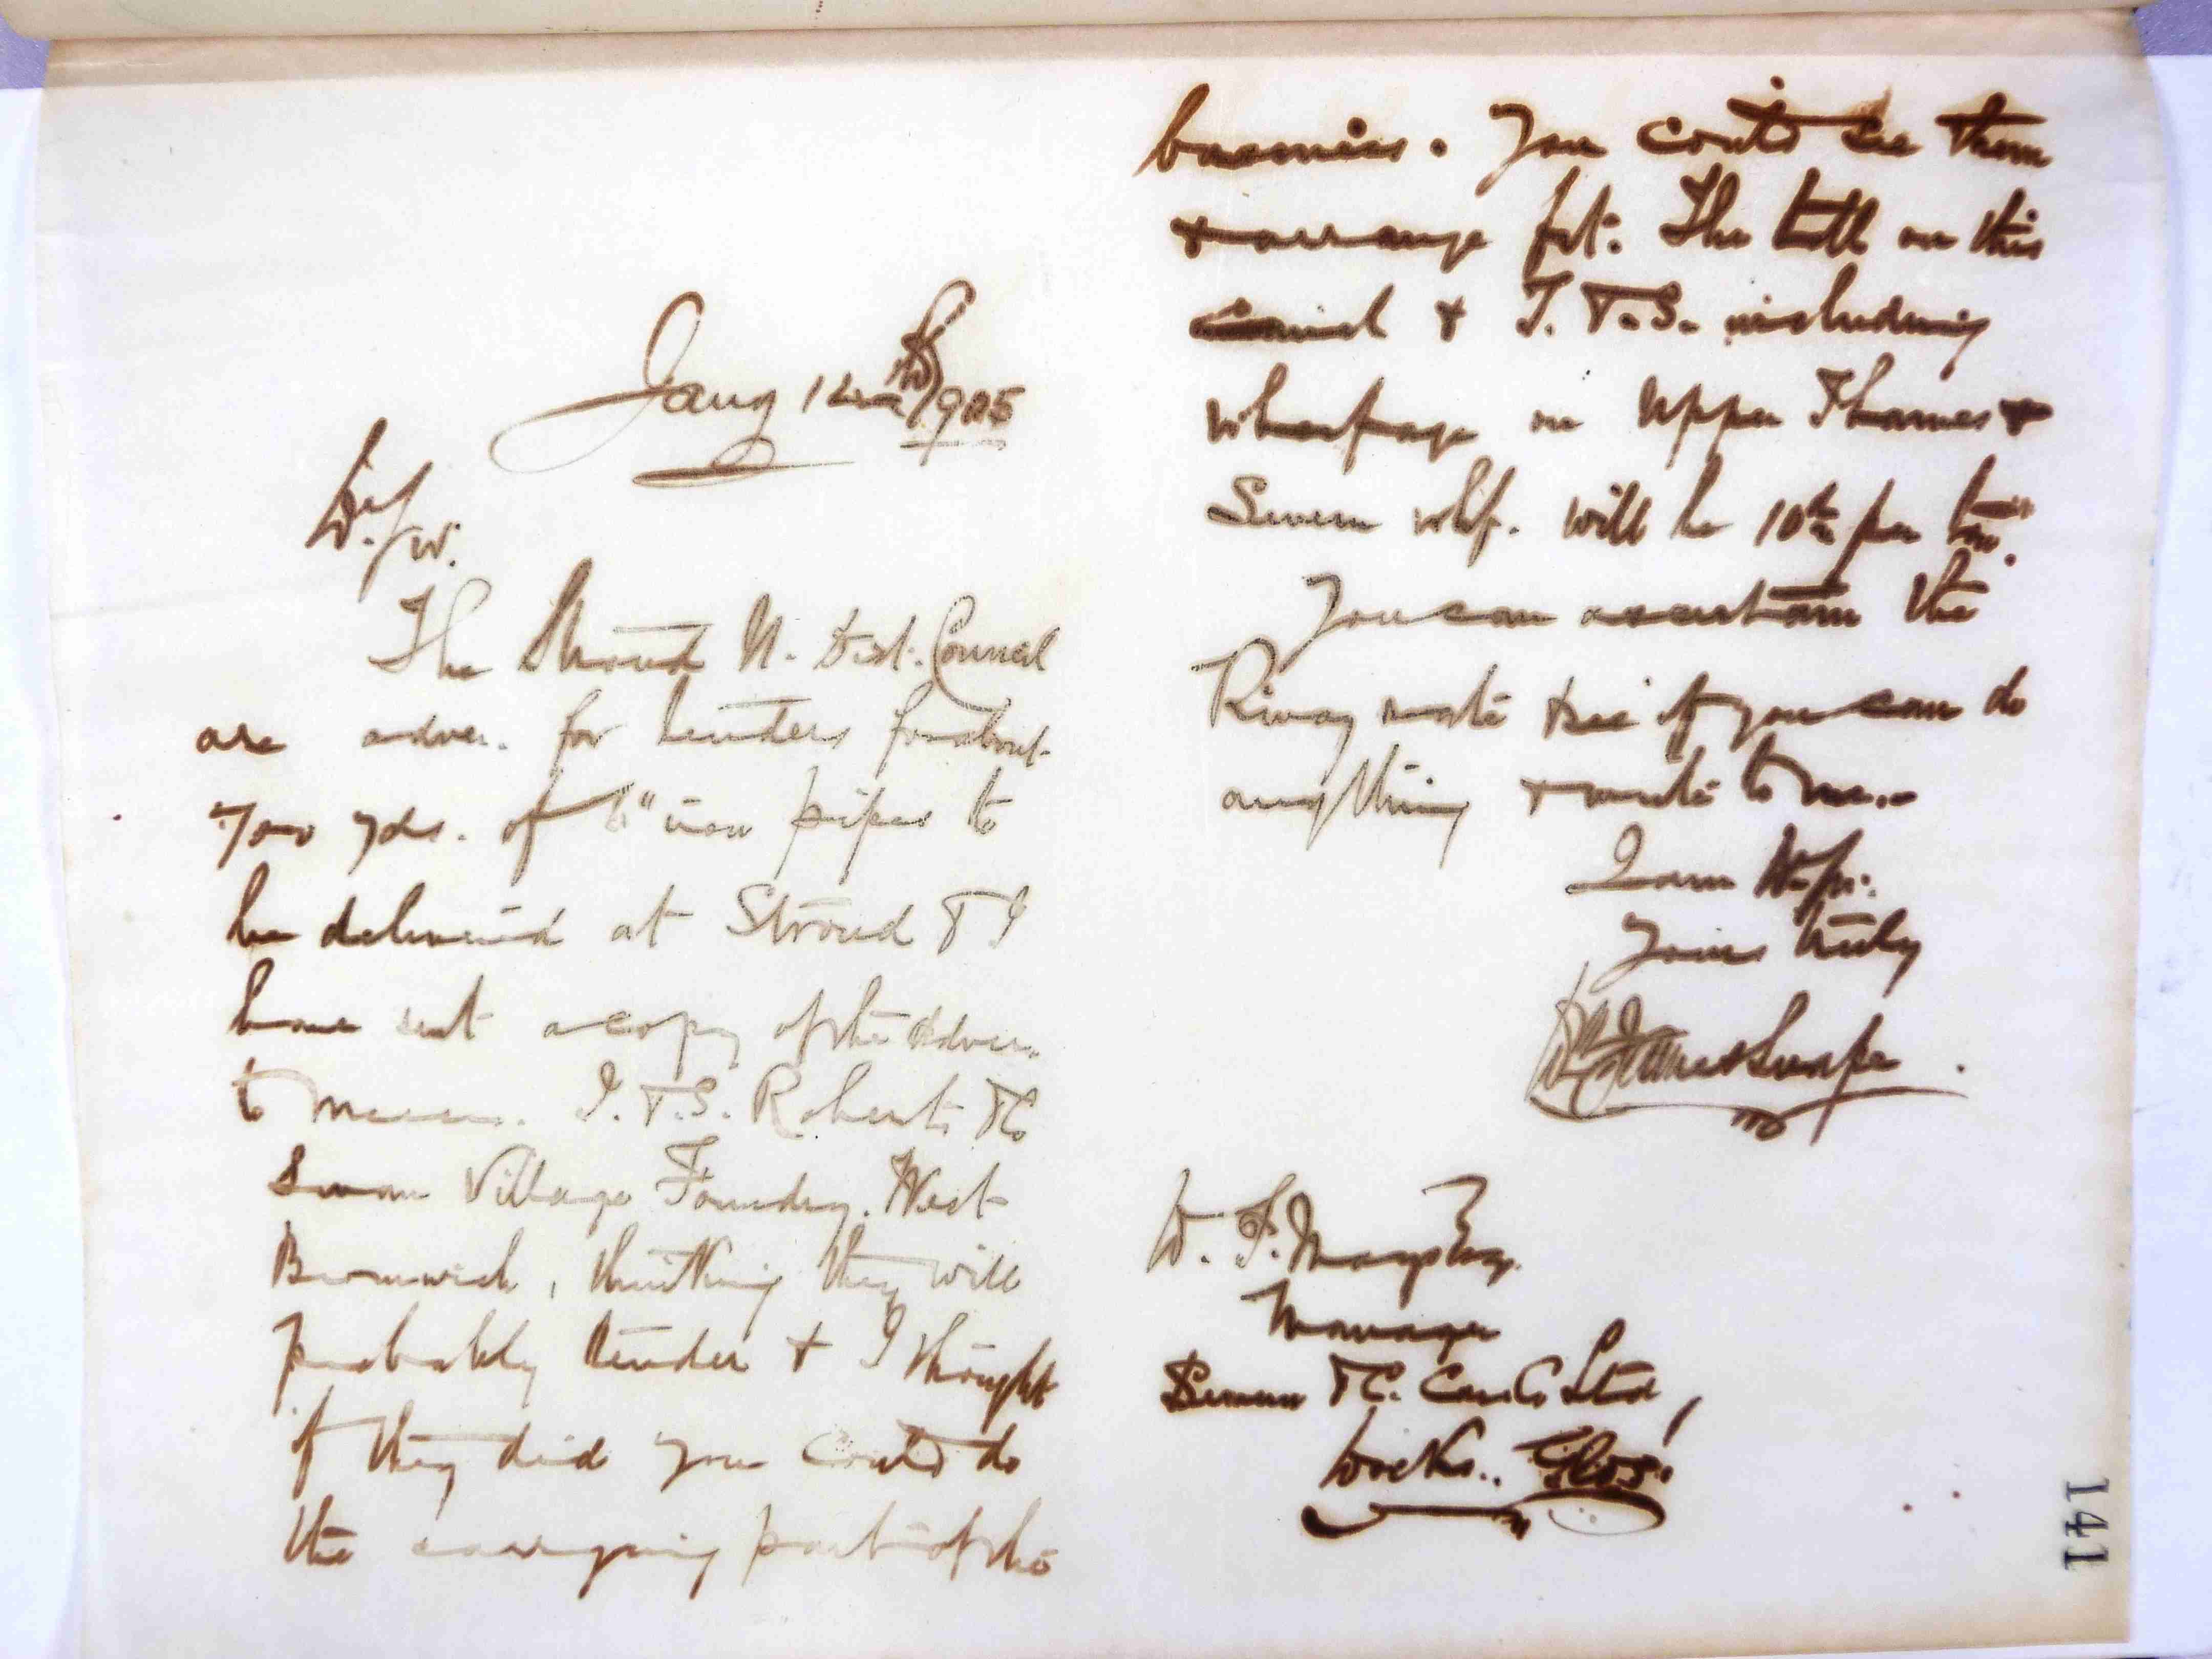 Jany 12th 1905
Dr/ Sir.
The Stroud U. Dist. Council
are adver. for tenders for about
700 yds. of 6" iron pipes to
be delivered at Stroud & I
have sent a copy of the adver.
to Messrs. J. & S. Roberts & Co
Swan Village Foundry. West
Bromwich, thinking they will
probably tender & I thought
if they did you could do
the carrying part of the
business. You could see them
& arrange frt. The toll on this
Canal & T. & S. including
wharfage on Upper Thames &
Severn whf. will be 10d per ton.
You can ascertain the
Rlway rate & see if you can do
anything & write to me.
I am Dr Sir.
Yours truly
Snape
W. F.
Manager
Severn & C. Car. Co Ltd,
Docks.. Glos.
141